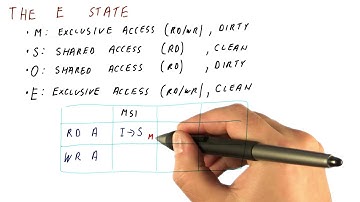 THE E STATE
• M: EXCLUSIVE ACCESS (RD/WR), DIRTY
• S: SHARED ACCESS (RD), CLEAN
• O: SHARED ACCESS (RD), DIRTY
• E: EXCLUSIVE ACCESS (RD/WR), CLEAN
MSI
RD A I→S M
WR A